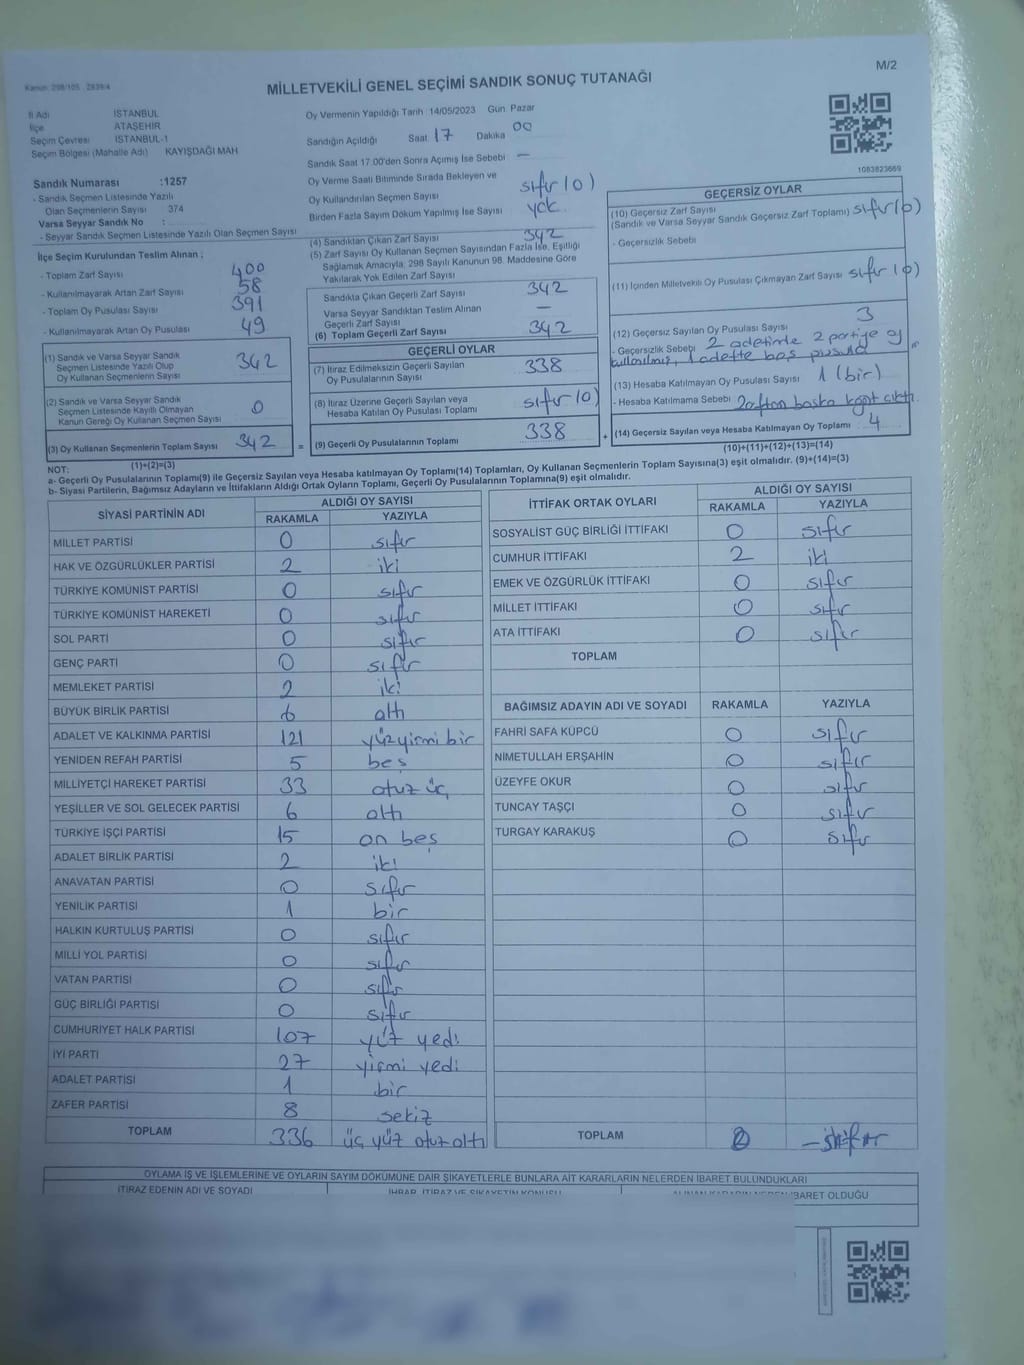 Kanun: 298/105 , 2839/4
MİLLETVEKİLİ GENEL SEÇİMİ SANDIK SONUÇ TUTANAĞI
M/2
İl Adı İSTANBUL
İlçe ATAŞEHİR
Seçim Çevresi İSTANBUL-1
Seçim Bölgesi (Mahalle Adı) KAYIŞDAĞI MAH
Sandık Numarası :1257
- Sandık Seçmen Listesinde Yazılı
Olan Seçmenlerin Sayısı 374
Varsa Seyyar Sandık No :
- Seyyar Sandık Seçmen Listesinde Yazılı Olan Seçmen Sayısı
İlçe Seçim Kurulundan Teslim Alınan ;
- Toplam Zarf Sayısı 400
- Kullanılmayarak Artan Zarf Sayısı 58
- Toplam Oy Pusulası Sayısı 391
- Kullanılmayarak Artan Oy Pusulası 49
(1) Sandık ve Varsa Seyyar Sandık
Seçmen Listesinde Yazılı Olup
Oy Kullanan Seçmenlerin Sayısı 342
(2) Sandık ve Varsa Seyyar Sandık
Seçmen Listesinde Kayıtlı Olmayan
Kanun Gereği Oy Kullanan Seçmen Sayısı 0
(3) Oy Kullanan Seçmenlerin Toplam Sayısı 342 =
(1)+(2)=(3)
Oy Vermenin Yapıldığı Tarih 14/05/2023 Gün Pazar
Sandığın Açıldığı Saat 17 Dakika 00
Sandık Saat 17.00'den Sonra Açılmış İse Sebebi —
Oy Verme Saati Bitiminde Sırada Bekleyen ve
Oy Kullandırılan Seçmen Sayısı sıfır (0)
Birden Fazla Sayım Döküm Yapılmış İse Sayısı yok
(4) Sandıktan Çıkan Zarf Sayısı 342
(5) Zarf Sayısı Oy Kullanan Seçmen Sayısından Fazla İse, Eşitliği
Sağlamak Amacıyla, 298 Sayılı Kanunun 98. Maddesine Göre
Yakılarak Yok Edilen Zarf Sayısı
Sandıkta Çıkan Geçerli Zarf Sayısı 342
Varsa Seyyar Sandıktan Teslim Alınan
Geçerli Zarf Sayısı —
(6) Toplam Geçerli Zarf Sayısı 342
GEÇERLİ OYLAR
(7) İtiraz Edilmeksizin Geçerli Sayılan
Oy Pusulalarının Sayısı 338
(8) İtiraz Üzerine Geçerli Sayılan veya
Hesaba Katılan Oy Pusulası Toplamı sıfır (0)
(9) Geçerli Oy Pusulalarının Toplamı 338 +
1083823669
GEÇERSİZ OYLAR
(10) Geçersiz Zarf Sayısı
(Sandık ve Varsa Seyyar Sandık Geçersiz Zarf Toplamı) sıfır (0)
- Geçersizlik Sebebi
(11) İçinden Milletvekili Oy Pusulası Çıkmayan Zarf Sayısı sıfır (0)
(12) Geçersiz Sayılan Oy Pusulası Sayısı 3
- Geçersizlik Sebebi 2 adetinde 2 partiye oy
kullanılmış, 1 adette boş pusula
(13) Hesaba Katılmayan Oy Pusulası Sayısı 1 (bir)
- Hesaba Katılmama Sebebi Zarftan başka kağıt çıktı.
(14) Geçersiz Sayılan veya Hesaba Katılmayan Oy Toplamı 4
(10)+(11)+(12)+(13)=(14)
NOT:
a- Geçerli Oy Pusulalarının Toplamı(9) ile Geçersiz Sayılan veya Hesaba katılmayan Oy Toplamı(14) Toplamları, Oy Kullanan Seçmenlerin Toplam Sayısına(3) eşit olmalıdır. (9)+(14)=(3)
b- Siyasi Partilerin, Bağımsız Adayların ve İttifakların Aldığı Ortak Oyların Toplamı, Geçerli Oy Pusulalarının Toplamına(9) eşit olmalıdır.
SİYASİ PARTİNİN ADI ALDIĞI OY SAYISI
RAKAMLA YAZIYLA
MİLLET PARTİSİ 0 sıfır
HAK VE ÖZGÜRLÜKLER PARTİSİ 2 iki
TÜRKİYE KOMÜNİST PARTİSİ 0 sıfır
TÜRKİYE KOMÜNİST HAREKETİ 0 sıfır
SOL PARTİ 0 sıfır
GENÇ PARTİ 0 sıfır
MEMLEKET PARTİSİ 2 iki
BÜYÜK BİRLİK PARTİSİ 6 altı
ADALET VE KALKINMA PARTİSİ 121 yüz yirmi bir
YENİDEN REFAH PARTİSİ 5 beş
MİLLİYETÇİ HAREKET PARTİSİ 33 otuz üç
YEŞİLLER VE SOL GELECEK PARTİSİ 6 altı
TÜRKİYE İŞÇİ PARTİSİ 15 on beş
ADALET BİRLİK PARTİSİ 2 iki
ANAVATAN PARTİSİ 0 sıfır
YENİLİK PARTİSİ 1 bir
HALKIN KURTULUŞ PARTİSİ 0 sıfır
MİLLİ YOL PARTİSİ 0 sıfır
VATAN PARTİSİ 0 sıfır
GÜÇ BİRLİĞİ PARTİSİ 0 sıfır
CUMHURİYET HALK PARTİSİ 107 yüz yedi
İYİ PARTİ 27 yirmi yedi
ADALET PARTİSİ 1 bir
ZAFER PARTİSİ 8 sekiz
TOPLAM 336 üç yüz otuz altı
İTTİFAK ORTAK OYLARI ALDIĞI OY SAYISI
RAKAMLA YAZIYLA
SOSYALİST GÜÇ BİRLİĞİ İTTİFAKI 0 sıfır
CUMHUR İTTİFAKI 2 iki
EMEK VE ÖZGÜRLÜK İTTİFAKI 0 sıfır
MİLLET İTTİFAKI 0 sıfır
ATA İTTİFAKI 0 sıfır
TOPLAM
BAĞIMSIZ ADAYIN ADI VE SOYADI RAKAMLA YAZIYLA
FAHRİ SAFA KÜPCÜ 0 sıfır
NİMETULLAH ERŞAHİN 0 sıfır
ÜZEYFE OKUR 0 sıfır
TUNCAY TAŞÇI 0 sıfır
TURGAY KARAKUŞ 0 sıfır
TOPLAM
OYLAMA İŞ VE İŞLEMLERİNE VE OYLARIN SAYIM DÖKÜMÜNE DAİR ŞİKAYETLERLE BUNLARA AİT KARARLARIN NELERDEN İBARET BULUNDUKLARI
İTİRAZ EDENİN ADI VE SOYADI İHBAR, İTİRAZ VE ŞİKAYETİN KONUSU İBARET OLDUĞU